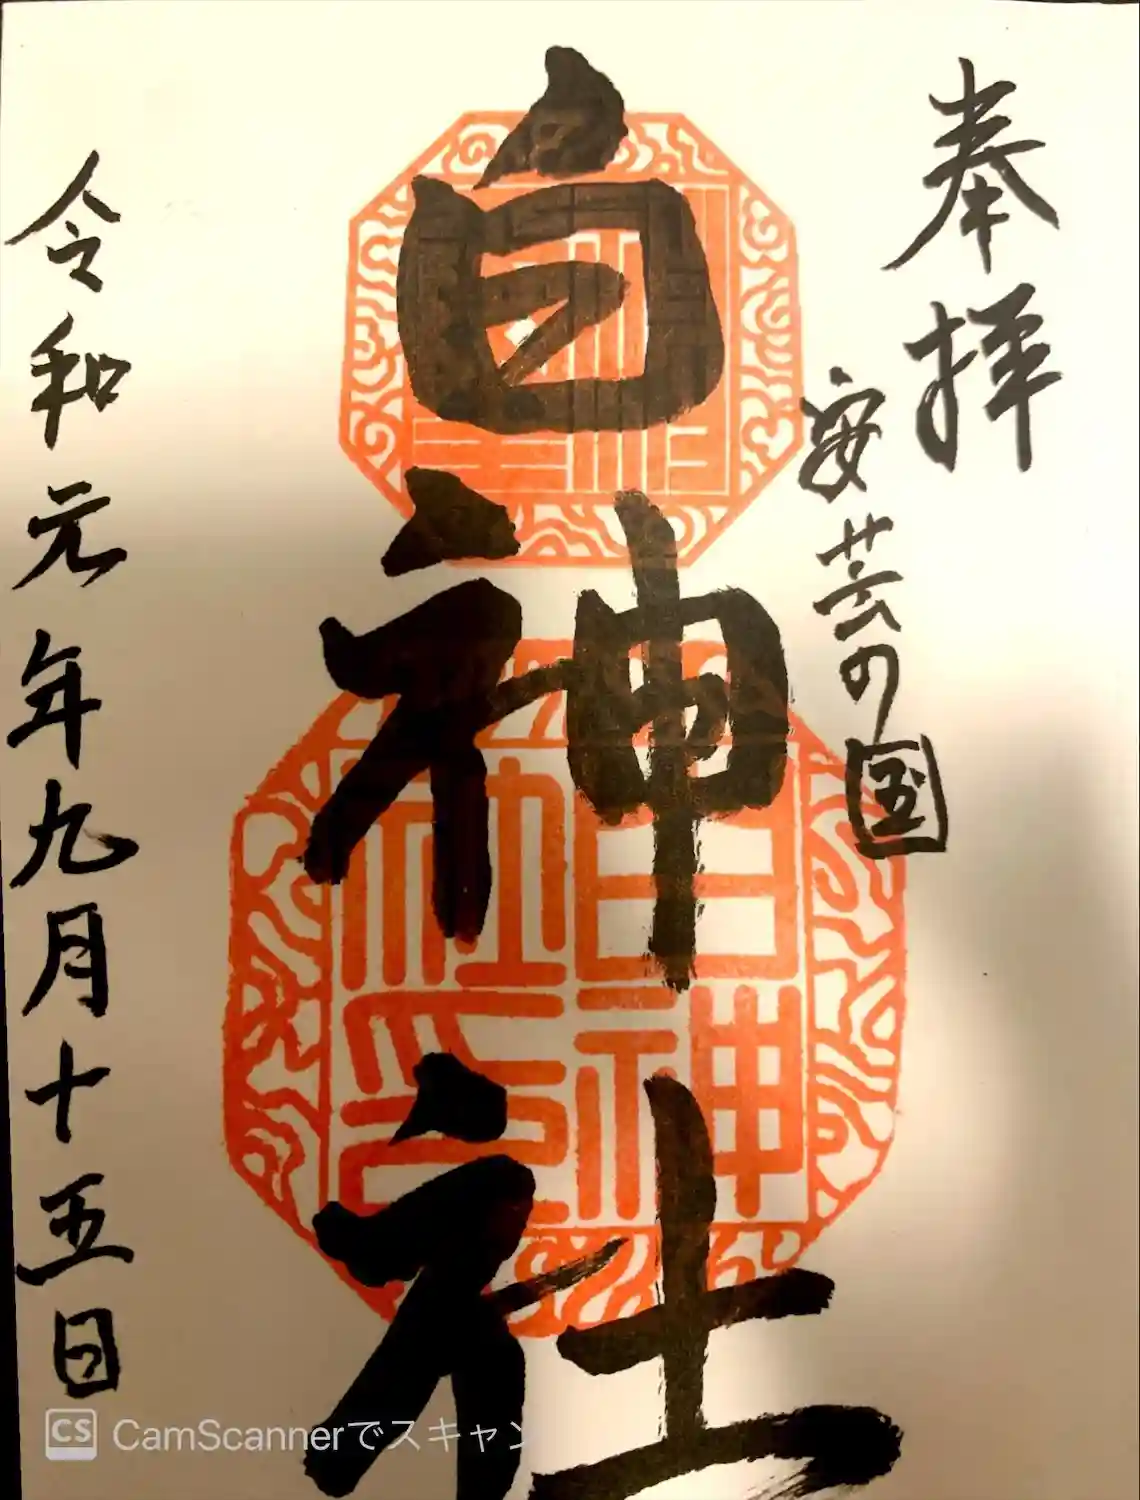 奉拝
安芸の国
白神社
白神社印
令和元年九月十五日
CS CamScannerでスキャン